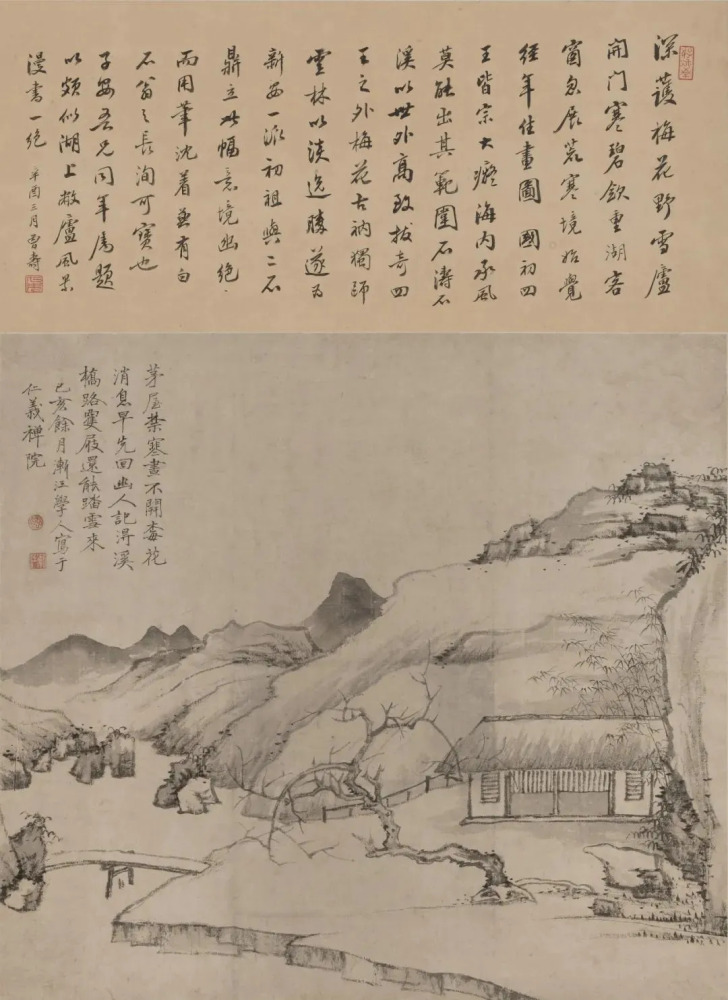 深護梅花野雪廬
開门寒碧欽重湖客
窗忽展荒寒境始覺
經年住畫圖 國初四
王皆宗大癡海内承風
莫能出其範圍石濤石
溪以世外高致拔奇四
王之外梅花古衲獨師
雲林以淡逸勝遂为
新安一派初祖與二石
鼎立此幅意境幽絕
而用筆沈着兼有白
石翁之長洵可寶也
子安吾兄同年属題
以頗似湖上敝廬風景
漫書一絕 辛酉三月曾壽
茅屋禁寒晝不開梅花
消息早先回幽人記得溪
橋路蠟屐還能踏雪来
己亥餘月漸江學人寫于
仁義禅院